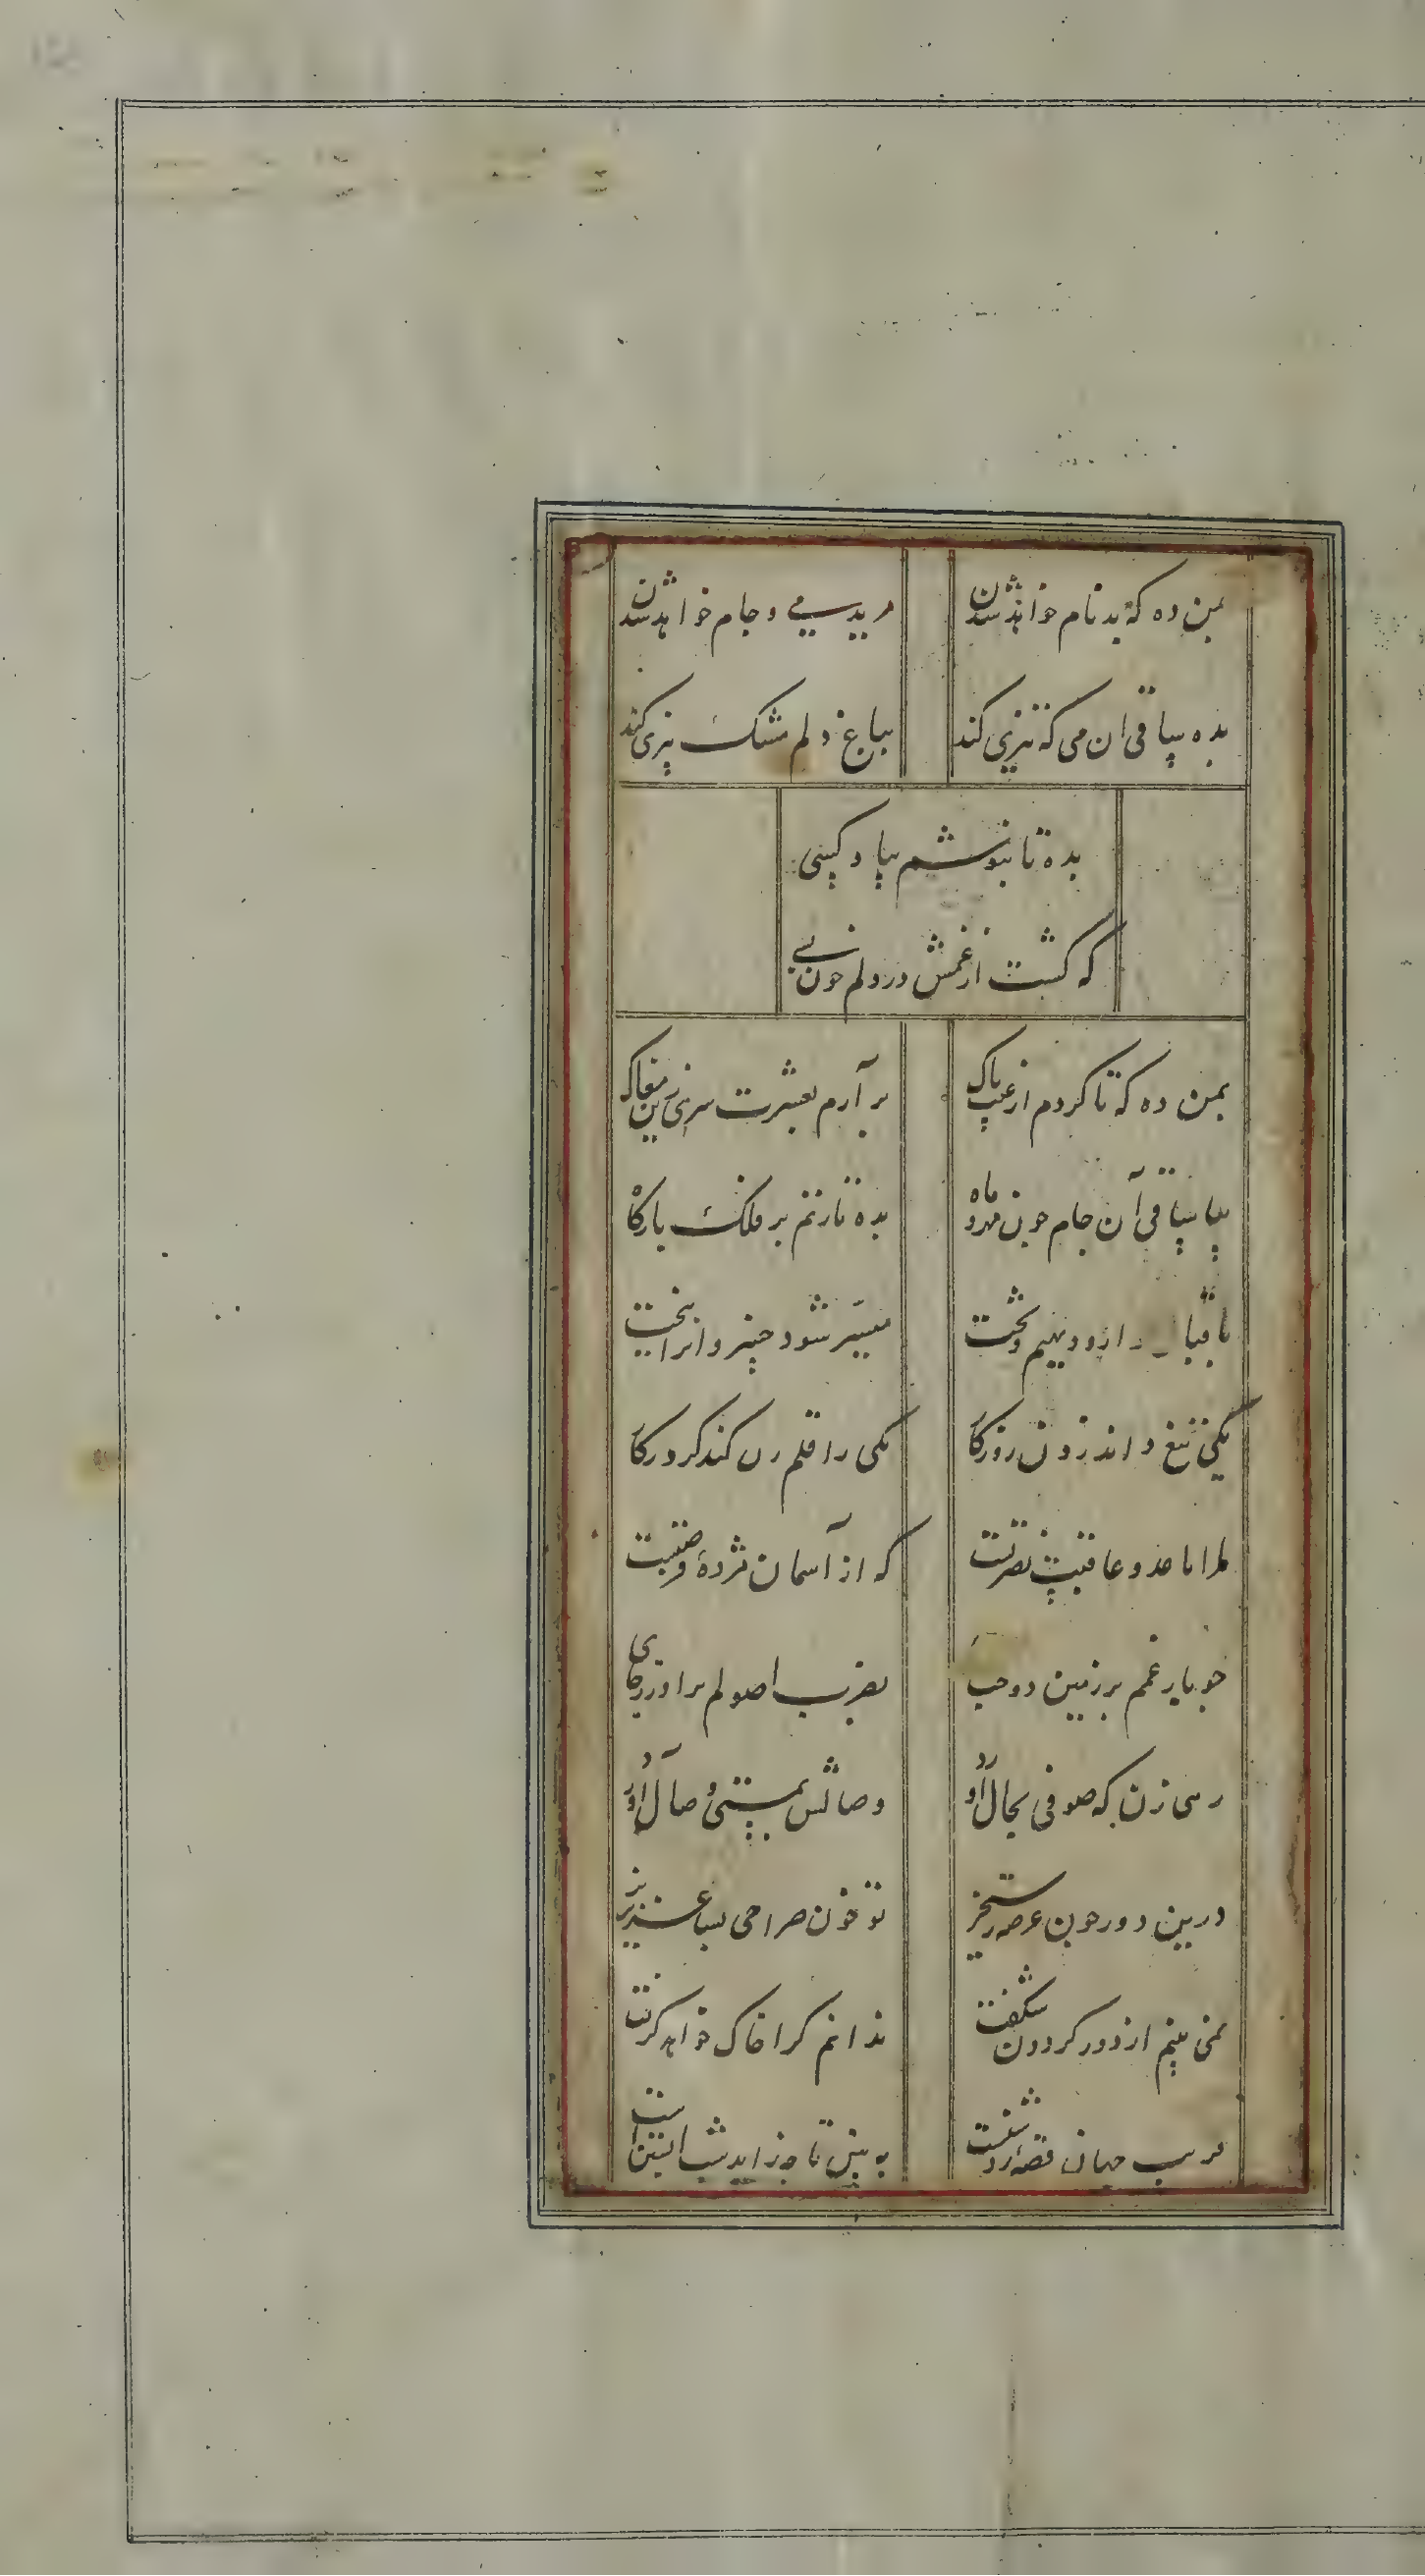 بمن ده که بدنام خواهد شدن
مرید می و جام خواهد شدن
بده ساقی ان می که تیزی کند
بباغ دلم مشک بیزی کند
بده تا بنوشم بیاد کسی
که گشت از غمش در دلم خون بسی
بمن ده که تا کردم از عیب پاک
بر آرم بعشرت سری زین مغاک
بیا ساقی آن جام چون مهر و ماه
بده تا زنم بر فلک بارگاه
میسر شود خسروانرا بتخت
یکی تیغ داند زدن روز کار
یکی را قلم زن کند کردکار
که از آسمان مژدهٔ نصرتست
چو بار غمم بر زمین دوخت
بضرب اصولم برآور ز جای
رهی زن که صوفی بحال آورد
وصالش بمستی وصال آورد
درین دور چون عرصه رستخیز
تو خون صراحی بساغر بریز
نمی بینم از دور کردون شکفت
ندانم کرا خاک خواهد گرفت
فریب جهان قصهٔ روشنست
به بین تا چه زاید شب ابستن است